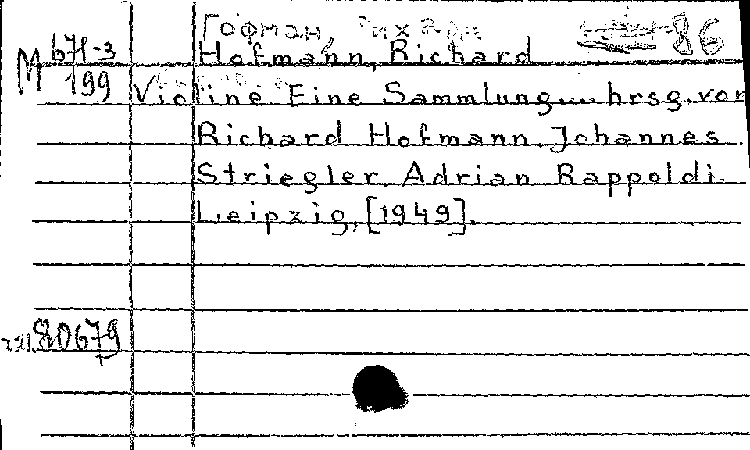 Гофман, Рихард 86
Hofmann, Richard
M 671-3
199
Violine Eine Sammlung... hrsg. von
Richard Hofmann, Johannes
Striegler, Adrian Rappoldi.
Leipzig, [1949].
80679